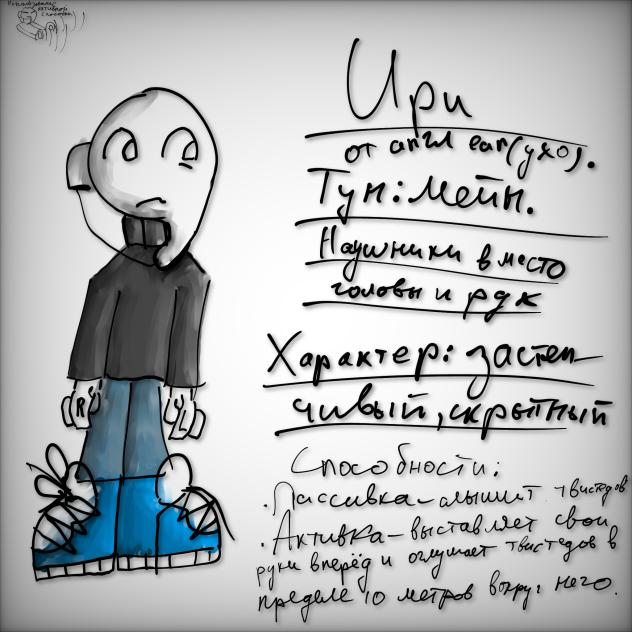 Использование
активной
способности
Ири
от англ ear(ухо).
Тип: мейн.
Наушники вместо
головы и рук
Характер: застен-
чивый, скрытный
Способности:
. Пассивка - слышит твистедов
. Активка - выставляет свои
руки вперёд и оглушает твистедов в
пределе 10 метров вокруг него.
R
L